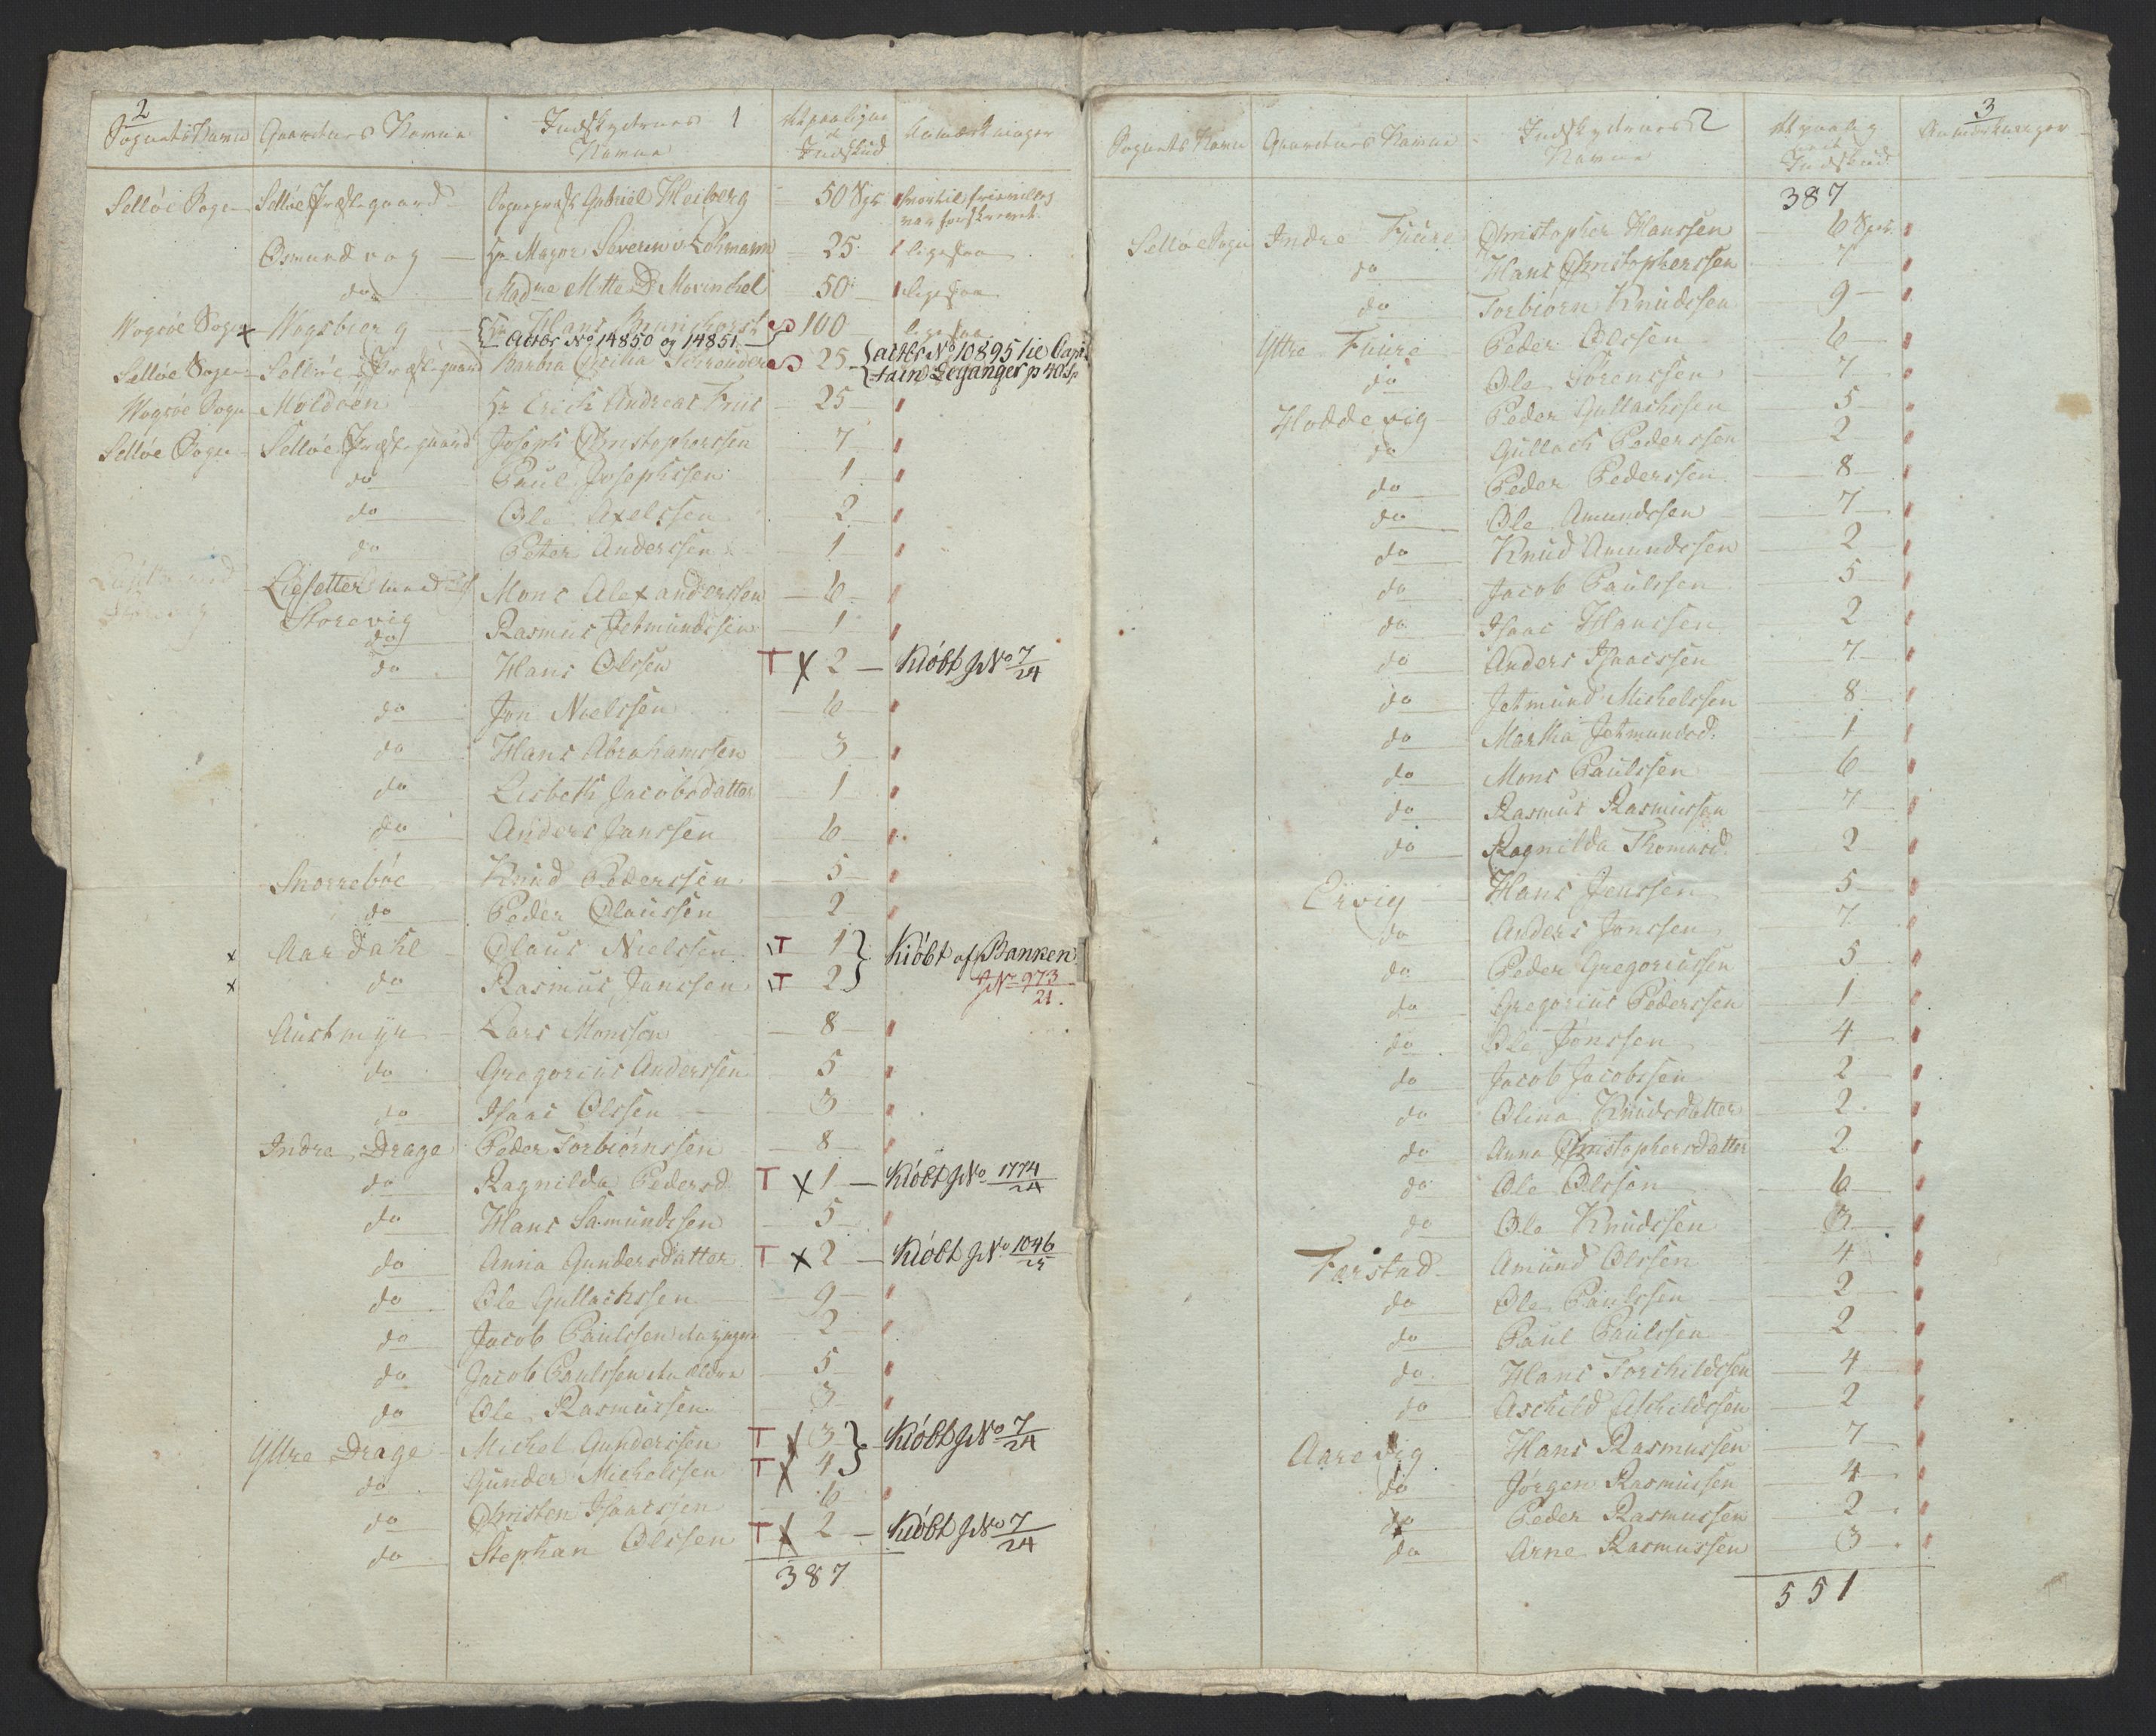 2
Sognets Navn Gaardenes Navne Indskydernes Navne 1 Indskud Anmærkninger
Selløe Sogn Selløe Præstegaard Sognepræst Gabriel Heiberg 50 Spr hvortil frievillig var forskrevet
Osmundvog Hr Major Severin v Lohmann 25 ligesaa
do Madme Mette D Morinchel 50 ligesaa
Wogsøe Sogn x Wogsberg Hr Hans 100 ligesaa
Actbr No 14850 og 14851
Selløe Sogn Selløe Præstegaard Barbra Cecilia Schrøuder 25 actbr No 10895 tie Capitain Leganger p 40 Sp
Wogsøe Sogn Moldøen Hr Erich Andreas Friis 25
Selløe Sogn Selløe Præstegaard Joseph Christophersen 7
do Paul Josephssen 1
do Ole Axelssen 2
do Peter Anderssen 1
Liesetter
Storevig Mons Alexanderssen 6
do Rasmus Jetmundssen 1
do Hans Olssen T x 2 Kiøbt JNo 7/24
do Jon Noelssen 6
do Hans Abrahamssen 3
do Lisbeth Jacobsdatter 1
do Anders Janssen 6
Snorrebøe Knud Pederssen 5
do Peder Olaussen 2
x Aardahl Olaus Nielssen T 1 } Kiøbt af Banken
x do Rasmus Janssen T 2 } JNo 973/21.
Austmyr Lars Monssen 8
do Gregorius Anderssen 5
do Isaac Olssen 3
Indre Drage Peder Torbiørnssen 8
do Ragnilda Pedersd. T x 1 Kiøbt JNo 1774/24
do Hans Samundssen 5
do Anna Gundersdatter T x 2 Kiøbt JNo 1046/25
do Ole Gullachssen 9
do Jacob Paulssen den yngre 2
do Jacob Paulssen den Eldre 5
do Ole Rasmussen 3
Yttre Drage Michel Gunderssen T x 3 } Kiøbt JNo 7/24
do Gunder Michelssen T x 4 }
do Christen Isaacssen 6
do Stephan Olssen T x 2 Kiøbt JNo 7/24
387
3
Sognets Navn Gaardenes Navne Indskydernes Navne 2 Indskud Anmerkninger
387
Selløe Sogn Indre Fuure Christopher Hanssen 6 Spr.
do Hans Christopherssen 7
do Torbiørn Knudssen 9
Yttre Fuure Peder Olssen 6
do Ole Sørenssen 7
Hoddevig Peder Gullachssen 5
do Gullach Pederssen 2
do Peder Pederssen 8
do Ole Amundssen 7
do Knud Amundssen 2
do Jacob Paulssen 5
do Isaac Hanssen 2
do Anders Isaacssen 7
do Jetmund Michelssen 8
do Martha Jetmundsd. 1
do Mons Paulssen 6
do Rasmus Rasmussen 7
do Ragnilda Thomasd. 2
Ervig Hans Jenssen 5
do Anders Janssen 7
do Peder Gregoriussen 5
do Gregorius Pederssen 1
do Ole Jonssen 4
do Jacob Jacobssen 2
do Olina Knudsdatter 2
do Anna Christophersdatter 2
do Ole Olssen 6
do Ole Knudssen 3
Færstad Amund Olssen 4
do Ole Paulssen 2
do Paul Paulssen 2
do Hans Torchildssen 4
do Aschild Aschildssen 2
Aarevig Hans Rasmussen 7
do Jørgen Rasmussen 4
do Peder Rasmussen 2
do Arne Rasmussen 3
551